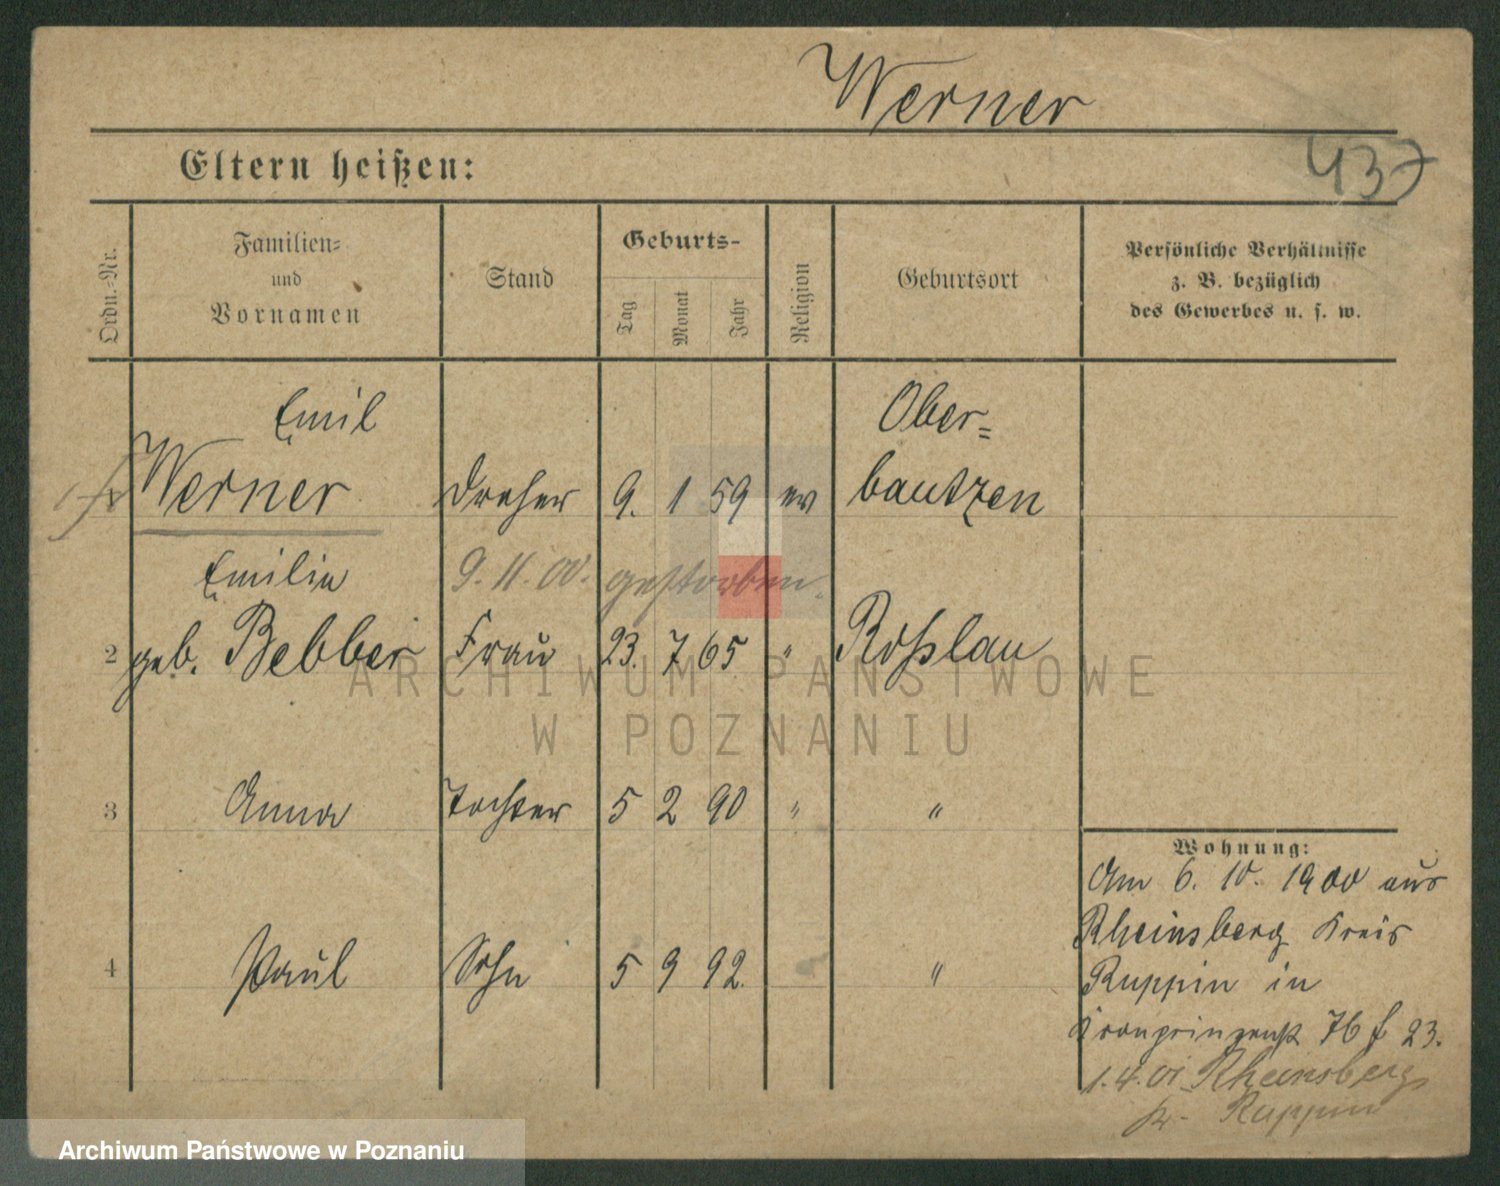 Werner
Eltern heißen:
437
Ordn.-Nr.
Familien-
und
Vornamen
Stand
Geburts-
Tag
Monat
Jahr
Religion
Geburtsort
Persönliche Verhältnisse
z. B. bezüglich
des Gewerbes u. s. w.
Emil Ober=
Werner Dreher 9. 1 59 ev bautzen
Emilie 9. 11. 00. gestorben.
2 geb. Bebber Frau 23. 7 65 " Roßlau
3 Anna Tochter 5 2 90 " "
4 Paul Sohn 5 9 92. "
Wohnung:
Am 6. 10. 1900 aus
Rheinsberg Kreis
Ruppin in
Kronprinzenst 76 f 23.
1.4.01 Rheinsberg
Kr. Ruppin
ARCHIWUM PAŃSTWOWE
W POZNANIU
Archiwum Państwowe w Poznaniu